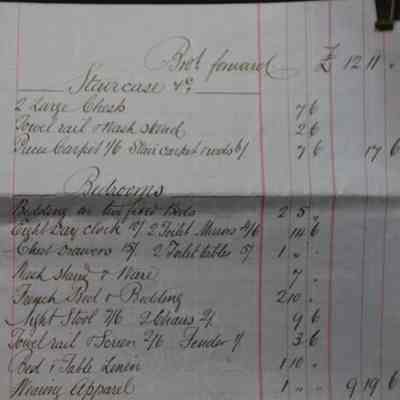 Brot forward £ 12 11 "
Staircase &c.
2 Large Chests 7 6
Towel rail & Wash stand 2 6
Piece Carpet 1/6 Stair carpet & rods 6/ 7 6 17 6
Bedrooms
Bedding on two fixed Beds 2 5 "
Eight Day clock 10/ 2 Toilet Mirrors 4/6 14 6
Chest Drawers 15/ 2 Toilet tables 5/ 1 " "
Wash stand & Ware 7 "
French Bed & Bedding 2 10 "
Night Stool 7/6 2 Chairs 2/ 9 6
Towel rail & Screen 2/6 Fender 1/ 3 6
Bed & Table Linen 1 10 "
Wearing Apparel 1 " " 9 19 6